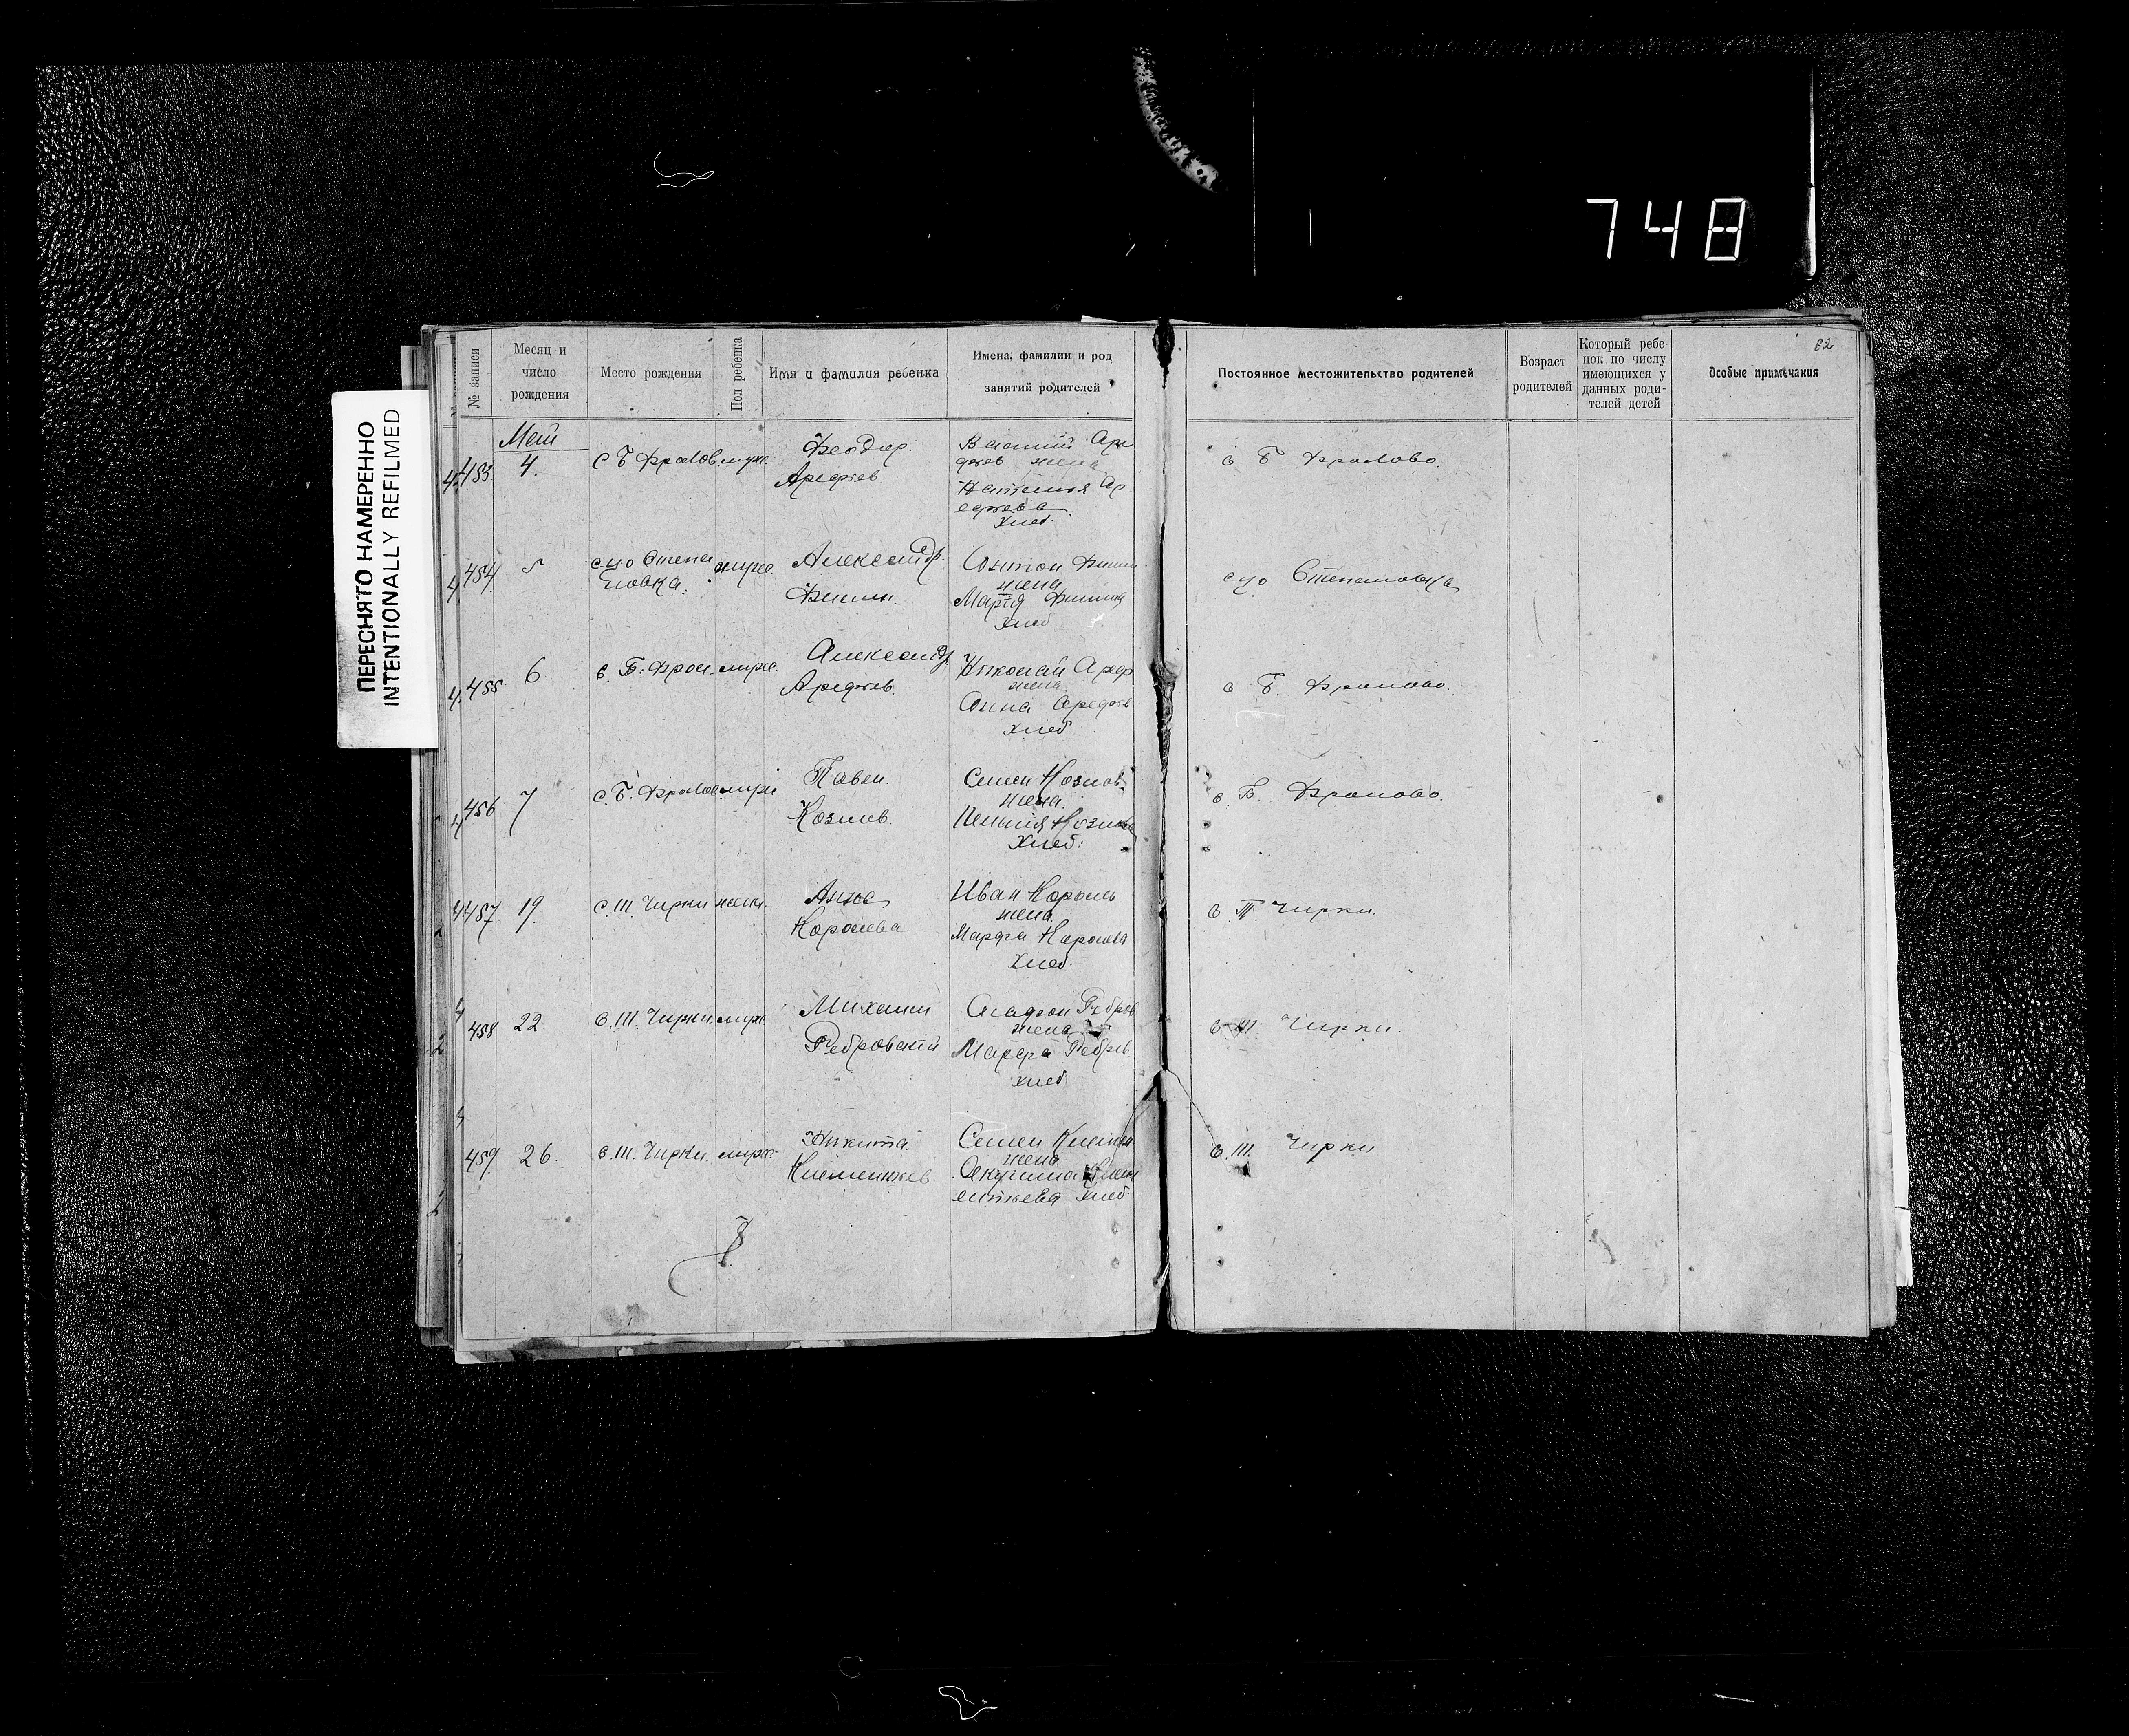 748
ПЕРЕСНЯТО НАМЕРЕННО
INTENTIONALLY REFILMED
№ записи
Месяц и число рождения
Место рождения
Пол ребенка
Имя и фамилия ребенка
Имена, фамилии и род занятий родителей
Постоянное местожительство родителей
Возраст родителей
Который ребенок по числу имеющихся у данных родителей детей
Особые примѣчания
82
Май
453
4.
с Б Фролов
муж.
Феодор.
Арефьев
Василий Аре
фьев жена
Наталья Ар
ефьева
Хлеб.
с Б Фролово.
454
5
с-цо Степа
новка.
муж.
Александр.
Фомин.
Антон
жена
Мария
Хлеб
с-цо Степановка
455
6
с. Б. Фрол.
муж.
Александр
Арефьев.
Николай Ареф
жена
Анна Арефьев
хлеб
с Б. Фролово.
456
7
с. Б. Фролово
муж
Павел.
Козлов.
Семен Козлов
жена.
Козлова
Хлеб.
с. Б. Фролово.
457
19.
с. Ш. Чирки
жен.
Анна
Королева
Иван Король
жена.
Марфа Королева
Хлеб.
с. Ш. Чирки.
458
22
с. Ш. Чирки.
муж.
Михаил
Ребровский
Агафон Ребров
жена
Марфа Ребров.
хлеб
с Ш Чирки.
459
26.
с. Ш. Чирки.
муж.
Никита
Клементьев
Семен Клемен
жена
Акулина Клем
ентьева хлеб.
с. Ш. Чирки